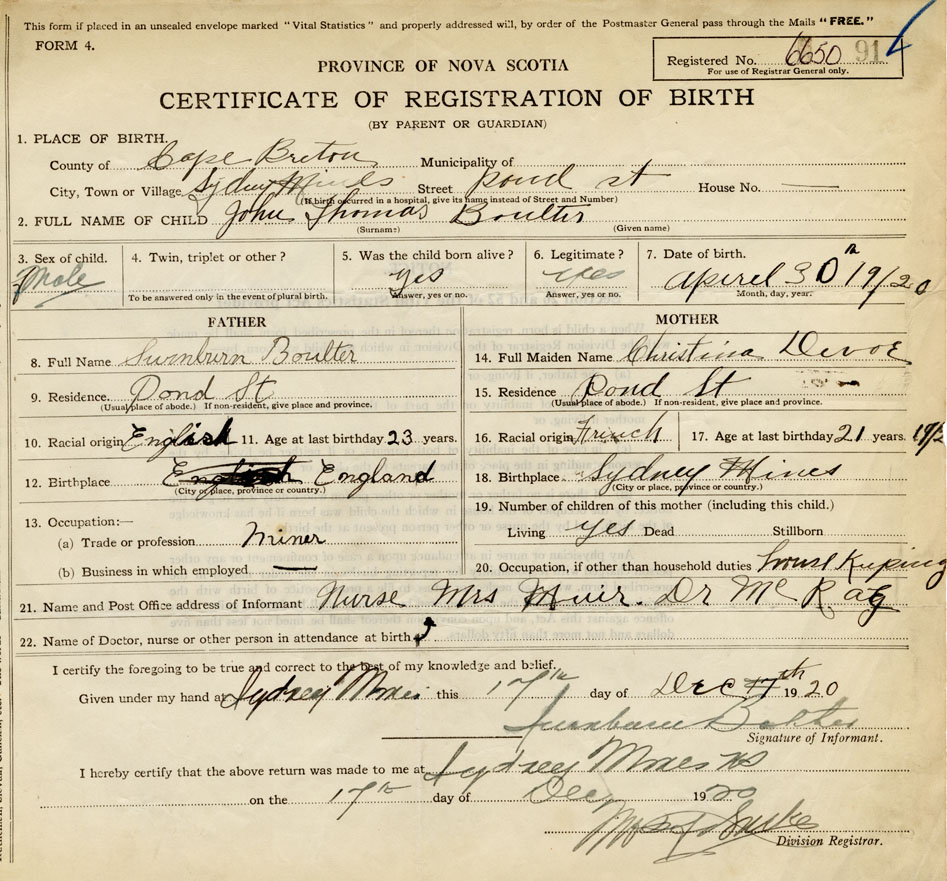 This form if placed in an unsealed envelope marked "Vital Statistics" and properly addressed will, by order of the Postmaster General pass through the Mails "FREE."
FORM 4.
Registered No. 6650 91
For use of Registrar General only.
PROVINCE OF NOVA SCOTIA
CERTIFICATE OF REGISTRATION OF BIRTH
(BY PARENT OR GUARDIAN)
1. PLACE OF BIRTH.
County of Cape Breton Municipality of
City, Town or Village Sydney Mines Street Pond st House No. —
(If birth occurred in a hospital, give its name instead of Street and Number)
2. FULL NAME OF CHILD John Thomas Boulter
(Surname) (Given name)
3. Sex of child. 4. Twin, triplet or other? 5. Was the child born alive? 6. Legitimate? 7. Date of birth.
Male yes yes Aprel 30th 1920
To be answered only in the event of plural birth. Answer, yes or no. Answer, yes or no. Month, day, year.
FATHER MOTHER
8. Full Name Swinburn Boulter 14. Full Maiden Name Christina Devoe
9. Residence. Pond St 15. Residence Pond St
(Usual place of abode.) If non-resident, give place and province. (Usual place of abode.) If non-resident, give place and province.
10. Racial origin English 11. Age at last birthday 23 years. 16. Racial origin French 17. Age at last birthday 21 years.
12. Birthplace England 18. Birthplace Sydney Mines
(City or place, province or country.) (City or place, province or country.)
13. Occupation:— 19. Number of children of this mother (including this child.)
(a) Trade or profession Miner Living yes Dead Stillborn
(b) Business in which employed — 20. Occupation, if other than household duties House Kuping
21. Name and Post Office address of Informant Nurse Mrs Muir. Dr Mc Rae
22. Name of Doctor, nurse or other person in attendance at birth
I certify the foregoing to be true and correct to the best of my knowledge and belief.
Given under my hand at Sydney Mines this 17th day of Dec 17th 1920
Swinburn Bolter
Signature of Informant.
I hereby certify that the above return was made to me at Sydney Mines NS
on the 17th day of Dec 1920
Division Registrar.